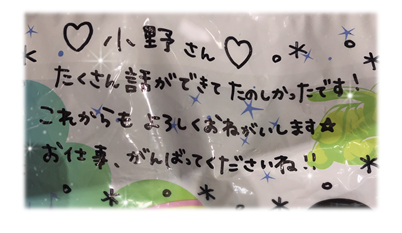 ♡小野さん♡
たくさん話ができてたのしかったです!
これからもよろしくおねがいします☆
お仕事、がんばってくださいね!!